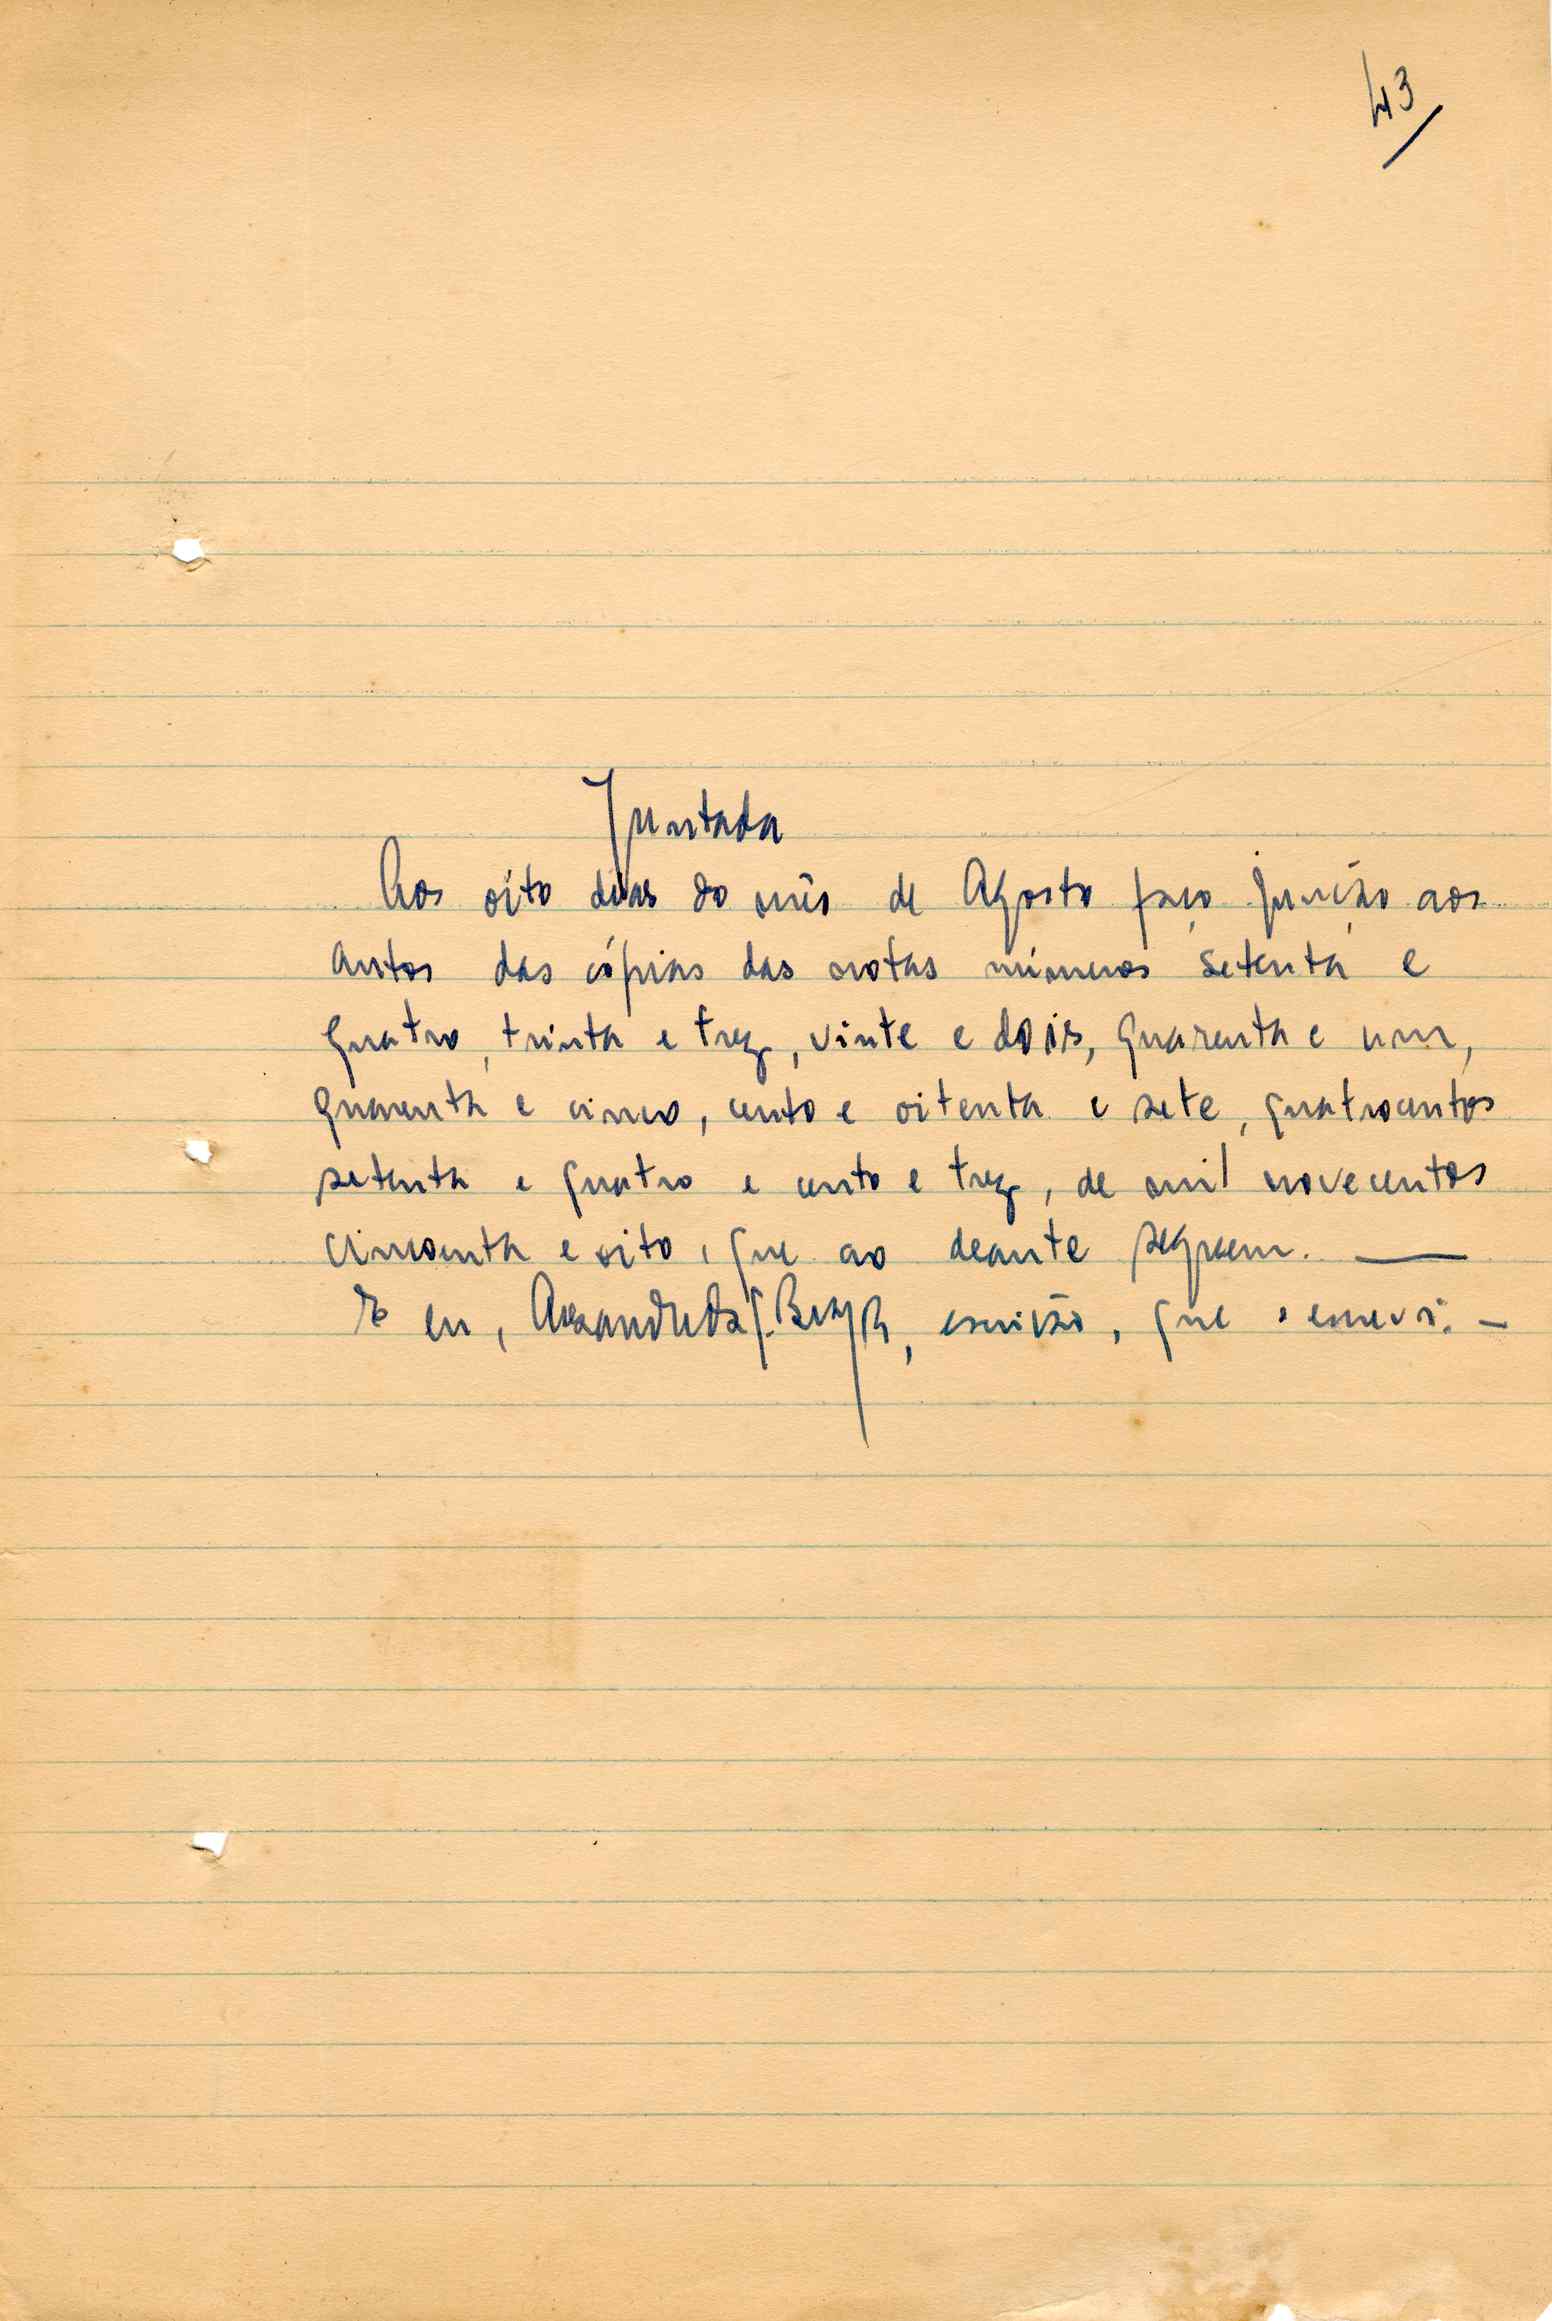 43
Juntada
Aos oito dias do mês de Agosto faço junção aos
autos das cópias das notas números setenta e
quatro, trinta e trez, vinte e dois, quarenta e um,
quarenta e cinco, cento e oitenta e sete, quatrocentos
setenta e quatro e cento e trez, de mil novecentos
cincoenta e oito, que ao deante seguem. —
E eu, escrivão, que o escrevi. —